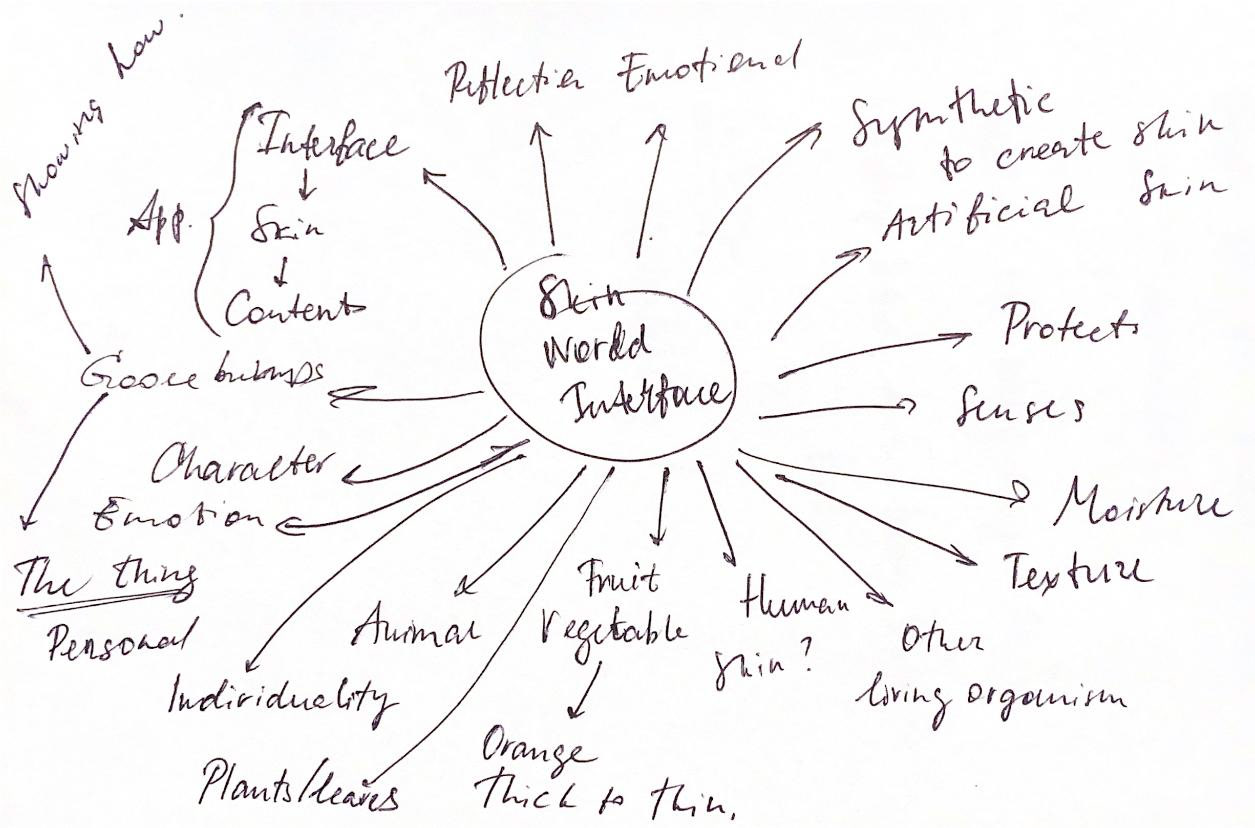 Showing how.
Reflection Emotional
Synthetic
to create skin
Artificial Skin
Interface
App.
Skin
Contents
Skin
World
Interface
Protects
Senses
Moisture
Texture
Other
living organism
Human
skin?
Fruit
Vegetable
Orange
thick to thin.
Animal
Plants/leaves
Individuality
Character
Emotion
Goose bubmps
The thing
Personal